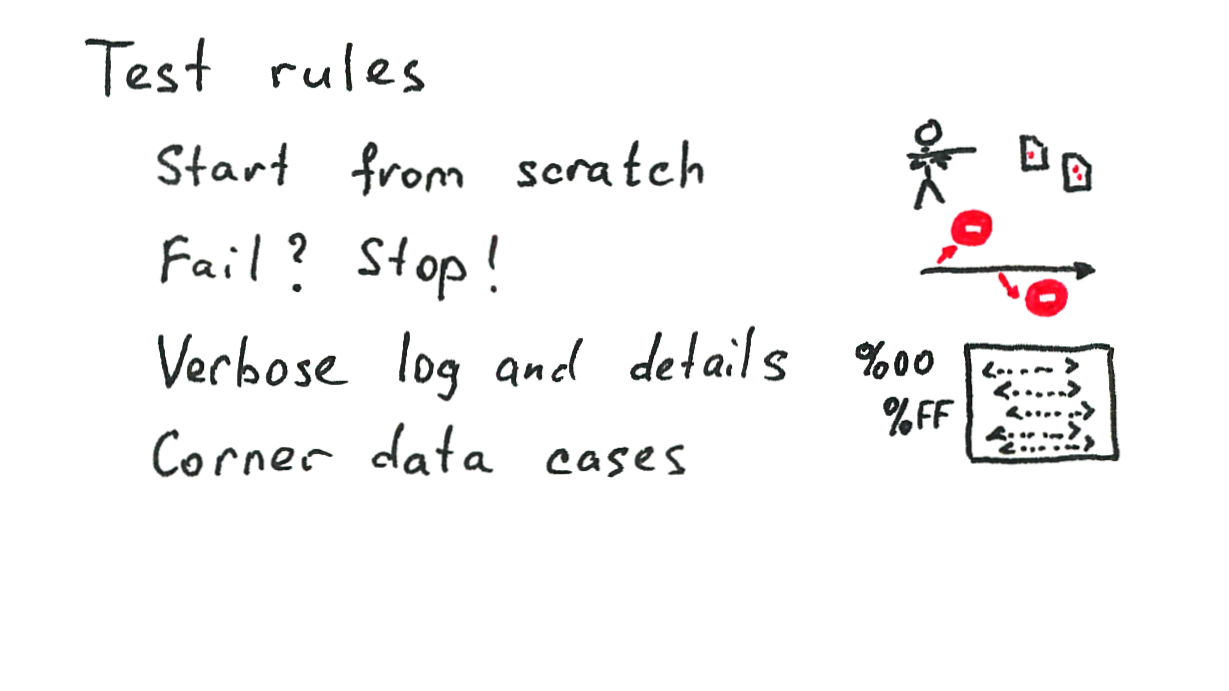 Test rules
Start from scratch
Fail? Stop!
Verbose log and details
%00
%FF
Corner data cases